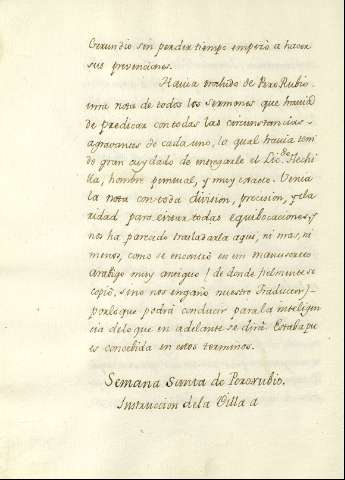 Gerundio sin perder tiempo empezò a hacer
sus prevenciones.
Havia trahido de Pero Rubio
una nota de todos los sermones que havia
de predicar con todas las circunstancias
agravantes de cada uno, la qual havia teni
do gran cuydado de entregarle el Lic.do Flechi
lla, hombre puntual, y muy exacto. Venia
la nota con toda division, precision, y cla
ridad para evitar todas equibocaciones, y
nos ha parecido trasladarla aqui, ni mas, ni
menos, como se encontrò en un manuscrito
Arabigo muy antiguo (de donde fielmente se
copiò, si no nos engaño nuestro Traductor)
porloque podrà conducir para la inteligen
cia delo que en adelante se dirà. Estaba pu
es concebida en estos terminos.
Semana Santa de Perorubio.
Instruccion dela Villa a